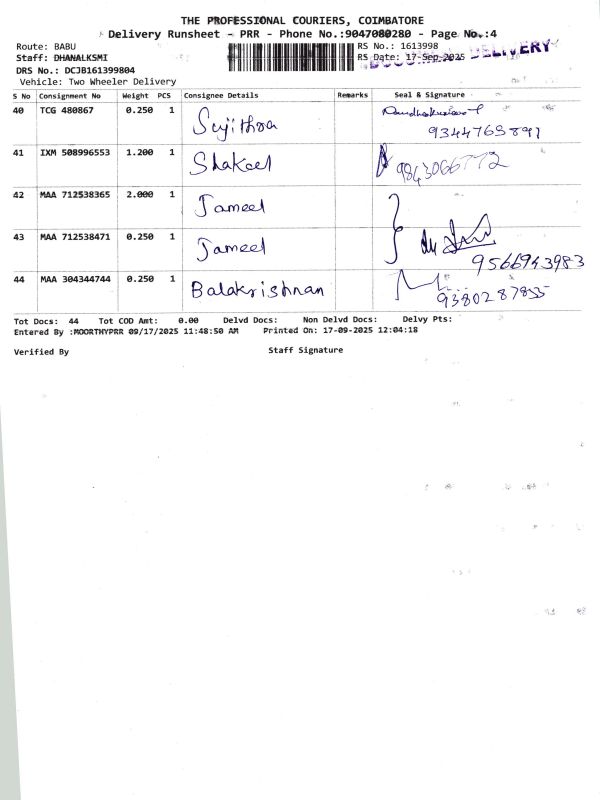 THE PROFESSIONAL COURIERS, COIMBATORE
Delivery Runsheet - PRR - Phone No.:9047080280 - Page No.:4
Route: BABU RS No.: 1613998
Staff: DHANALKSMI RS Date: 17-Sep-2025 DELIVERY
DRS No.: DCJB161399804
Vehicle: Two Wheeler Delivery
S No Consignment No Weight PCS Consignee Details Remarks Seal & Signature
40 TCG 480867 0.250 1 Sujithra
41 IXM 508996553 1.200 1 Shakeel 9843066772
42 MAA 712538365 2.000 1 Jameel
43 MAA 712538471 0.250 1 Jameel 9566943983
44 MAA 304344744 0.250 1 Balakrishnan
Tot Docs: 44 Tot COD Amt: 0.00 Delvd Docs: Non Delvd Docs: Delvy Pts:
Entered By :MOORTHYPRR 09/17/2025 11:48:50 AM Printed On: 17-09-2025 12:04:18
Verified By Staff Signature